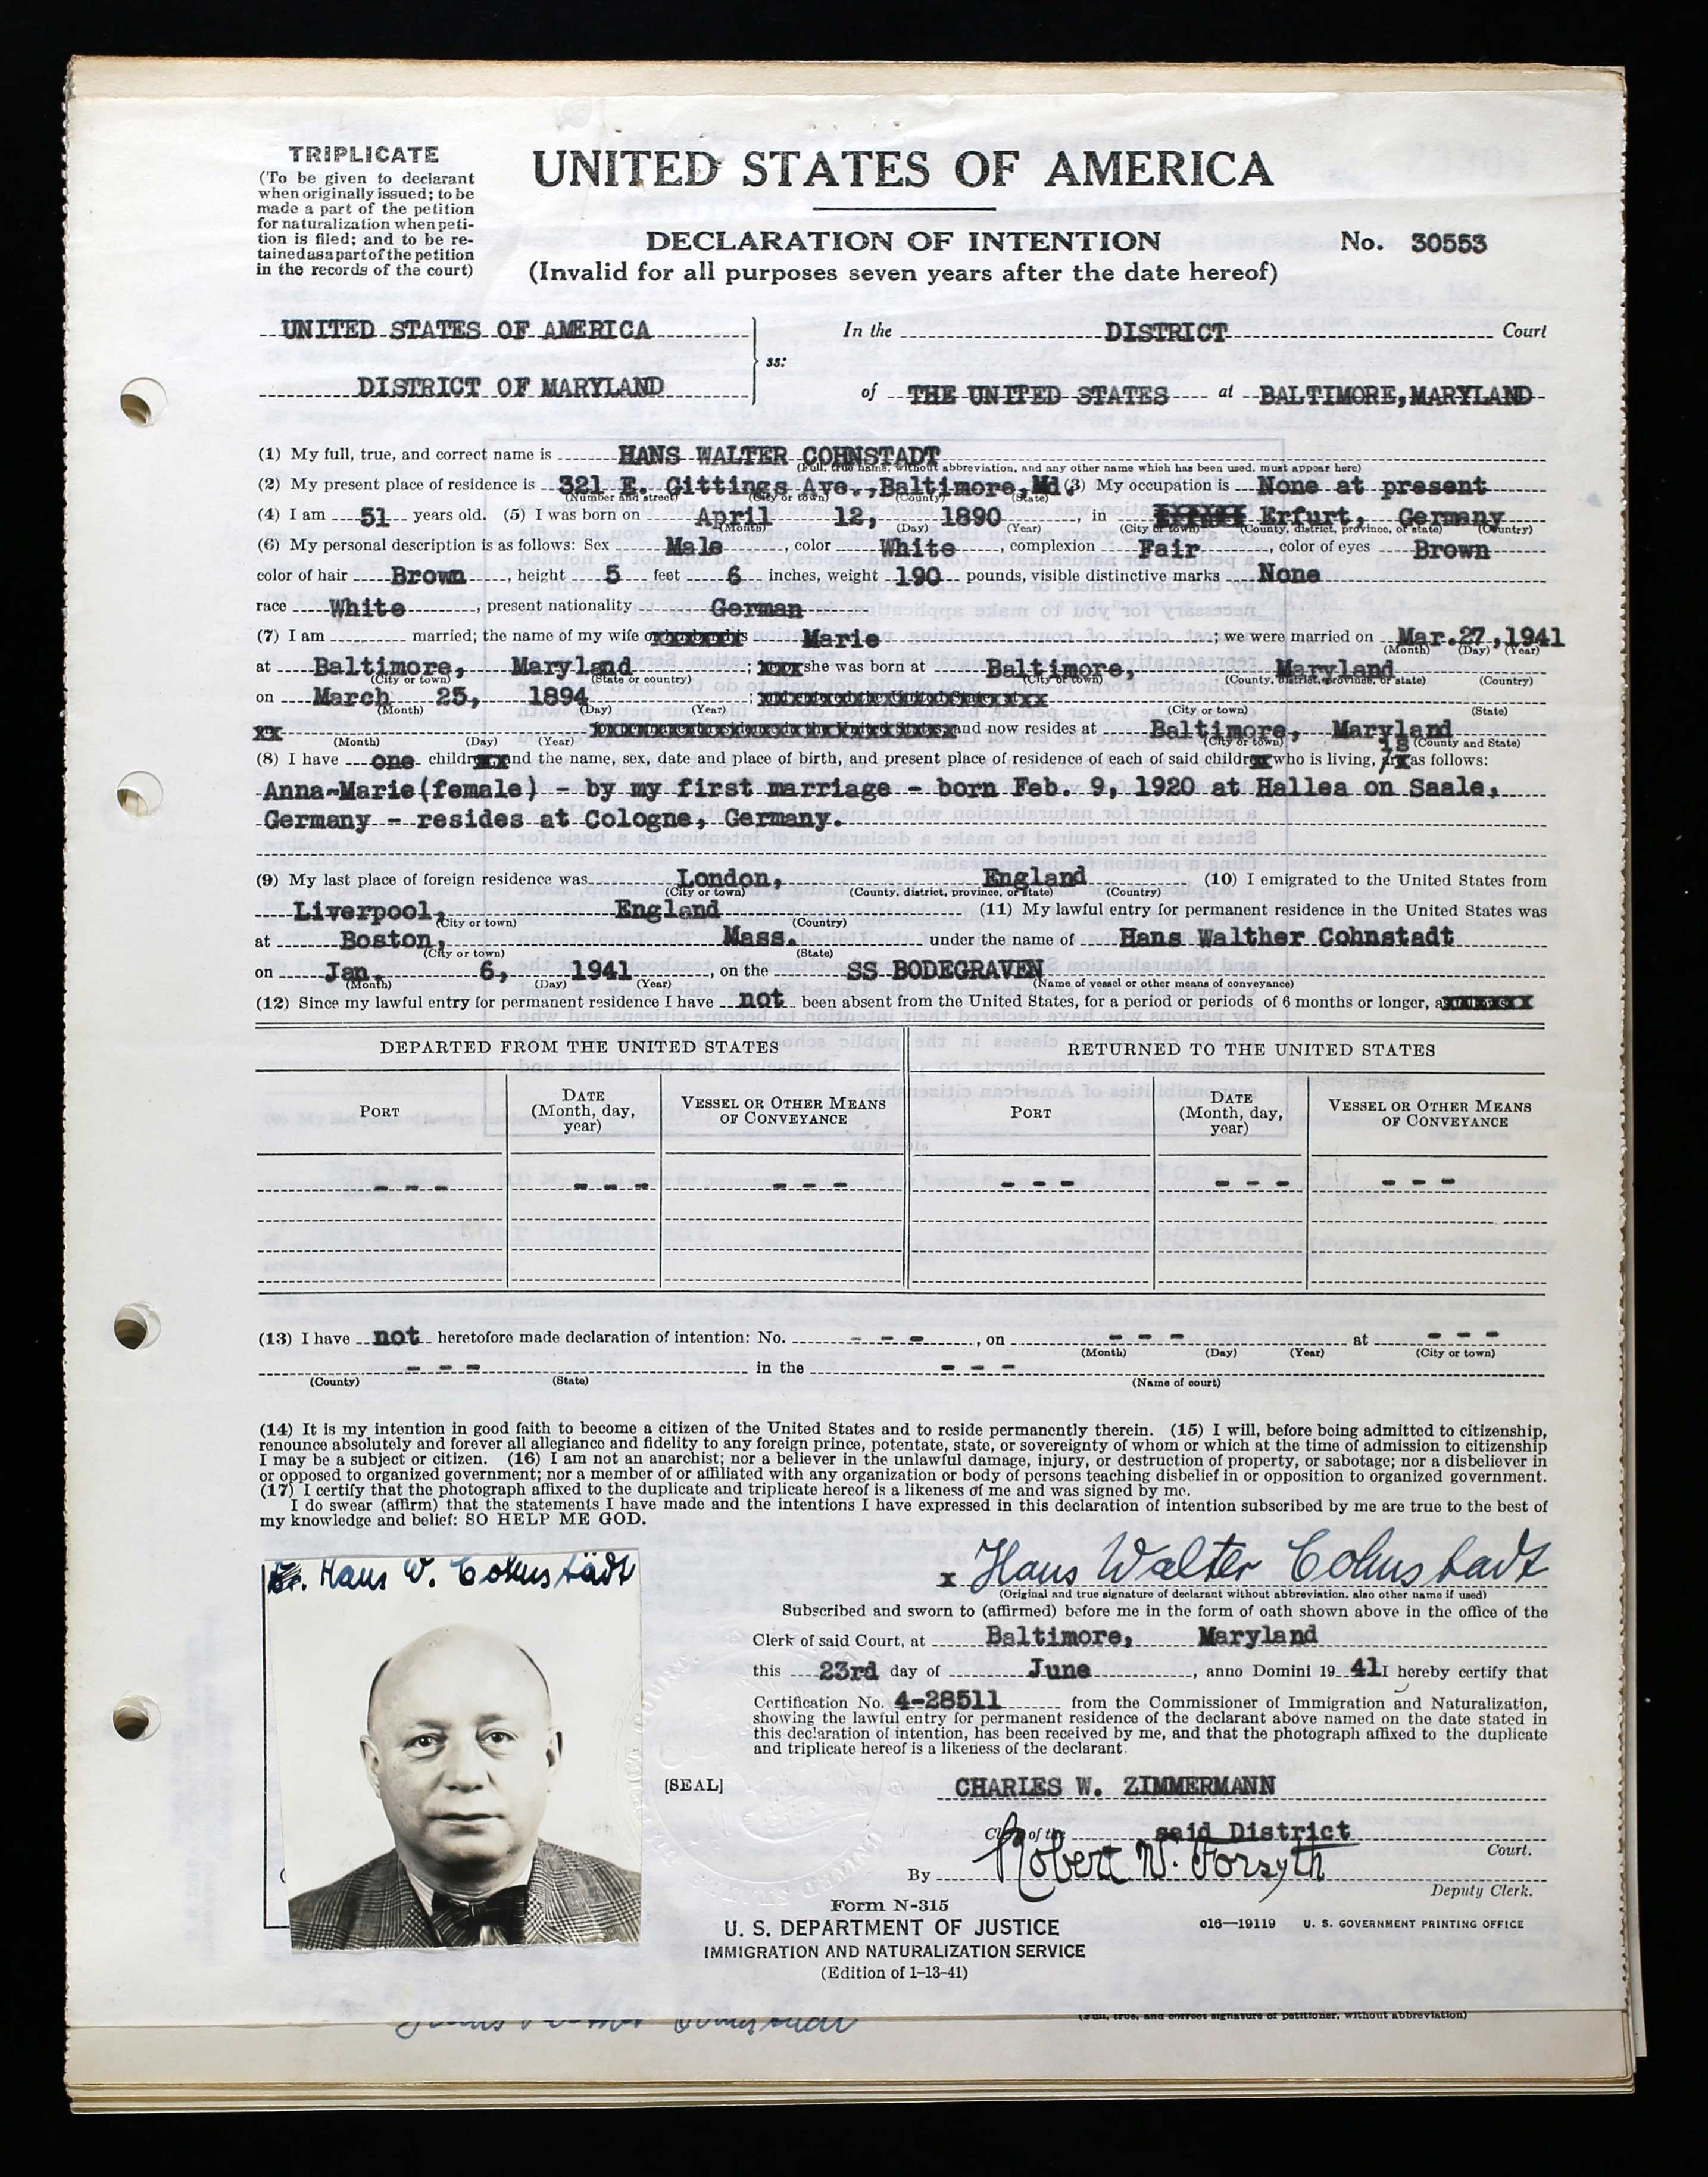 TRIPLICATE
(To be given to declarant
when originally issued; to be
made a part of the petition
for naturalization when peti-
tion is filed; and to be re-
tained as a part of the petition
in the records of the court)
UNITED STATES OF AMERICA
DECLARATION OF INTENTION
No. 30553
(Invalid for all purposes seven years after the date hereof)
UNITED STATES OF AMERICA
DISTRICT OF MARYLAND
ss:
In the DISTRICT Court
of THE UNITED STATES at BALTIMORE, MARYLAND
(1) My full, true, and correct name is HANS WALTER COHNSTADT
(Full, true name, without abbreviation, and any other name which has been used, must appear here)
(2) My present place of residence is 321 E. Gittings Ave., Baltimore, Md. (3) My occupation is None at present
(Number and street) (City or town) (County) (State)
(4) I am 51 years old. (5) I was born on April 12, 1890, in Erfurt, Germany
(Month) (Day) (Year) (City or town) (County, district, province, or state) (Country)
(6) My personal description is as follows: Sex Male, color White, complexion Fair, color of eyes Brown
color of hair Brown, height 5 feet 6 inches, weight 190 pounds, visible distinctive marks None
race White, present nationality German
(7) I am married; the name of my wife Marie; we were married on Mar. 27, 1941
(Month) (Day) (Year)
at Baltimore, Maryland; she was born at Baltimore, Maryland
(City or town) (State or country) (City or town) (County, district, province, or state) (Country)
on March 25, 1894;
(Month) (Day) (Year) (City or town) (State)
and now resides at Baltimore, Maryland
(Month) (Day) (Year) (City or town) (County and State)
(8) I have one child and the name, sex, date and place of birth, and present place of residence of each of said child who is living, is as follows:
Anna-Marie(female) - by my first marriage - born Feb. 9, 1920 at Hallea on Saale,
Germany - resides at Cologne, Germany.
(9) My last place of foreign residence was London, England (10) I emigrated to the United States from
(City or town) (County, district, province, or state) (Country)
Liverpool, England (11) My lawful entry for permanent residence in the United States was
(City or town) (Country)
at Boston, Mass. under the name of Hans Walther Cohnstadt
(City or town) (State)
on Jan. 6, 1941, on the SS BODEGRAVEN
(Month) (Day) (Year) (Name of vessel or other means of conveyance)
(12) Since my lawful entry for permanent residence I have not been absent from the United States, for a period or periods of 6 months or longer,
DEPARTED FROM THE UNITED STATES RETURNED TO THE UNITED STATES
PORT DATE (Month, day, year) VESSEL OR OTHER MEANS OF CONVEYANCE PORT DATE (Month, day, year) VESSEL OR OTHER MEANS OF CONVEYANCE
- - - - - - - - - - - - - - - - - -
(13) I have not heretofore made declaration of intention: No. - - -, on - - - at - - -
(Month) (Day) (Year) (City or town)
- - - in the - - -
(County) (State) (Name of court)
(14) It is my intention in good faith to become a citizen of the United States and to reside permanently therein. (15) I will, before being admitted to citizenship,
renounce absolutely and forever all allegiance and fidelity to any foreign prince, potentate, state, or sovereignty of whom or which at the time of admission to citizenship
I may be a subject or citizen. (16) I am not an anarchist; nor a believer in the unlawful damage, injury, or destruction of property, or sabotage; nor a disbeliever in
or opposed to organized government; nor a member of or affiliated with any organization or body of persons teaching disbelief in or opposition to organized government.
(17) I certify that the photograph affixed to the duplicate and triplicate hereof is a likeness of me and was signed by me.
I do swear (affirm) that the statements I have made and the intentions I have expressed in this declaration of intention subscribed by me are true to the best of
my knowledge and belief: SO HELP ME GOD.
Hans W. Cohnstädt
x Hans Walter Cohnstadt
(Original and true signature of declarant without abbreviation, also other name if used)
Subscribed and sworn to (affirmed) before me in the form of oath shown above in the office of the
Clerk of said Court, at Baltimore, Maryland
this 23rd day of June, anno Domini 1941 I hereby certify that
Certification No. 4-28511 from the Commissioner of Immigration and Naturalization,
showing the lawful entry for permanent residence of the declarant above named on the date stated in
this declaration of intention, has been received by me, and that the photograph affixed to the duplicate
and triplicate hereof is a likeness of the declarant.
[SEAL]
CHARLES W. ZIMMERMANN
Clerk of the said District Court.
By Robert W. Forsyth
Deputy Clerk.
Form N-315
U. S. DEPARTMENT OF JUSTICE
IMMIGRATION AND NATURALIZATION SERVICE
(Edition of 1-13-41)
o16—19119 U. S. GOVERNMENT PRINTING OFFICE
(Full, true, and correct signature of petitioner, without abbreviation)